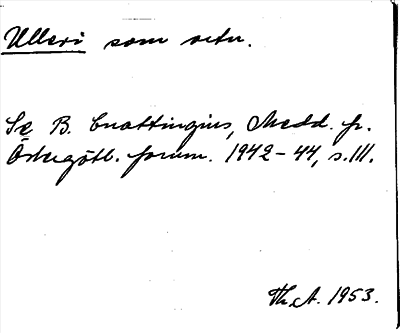 Ulleri som ortn.
Se B. Cnattingius, Medd. fr.
Östergötl. fornm. 1942-44, s. 111.
Th. A. 1953.